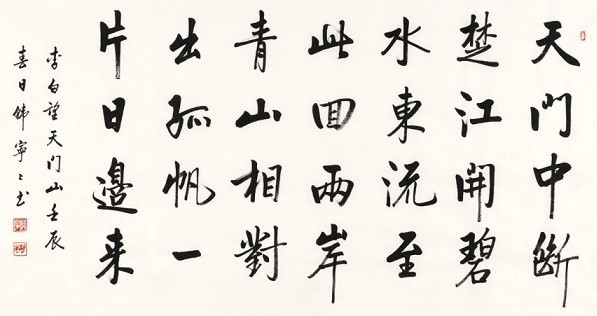 天門中斷
楚江開碧
水東流至
此回兩岸
青山相對
出孤帆一
片日邊来
李白望天门山壬辰
春日韩寧〻书